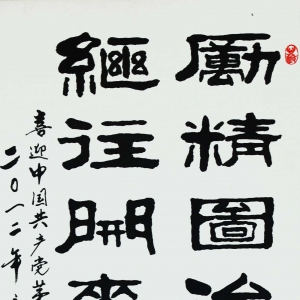 勵精圖治
繼往開來
喜迎中国共产党第
二〇一二年